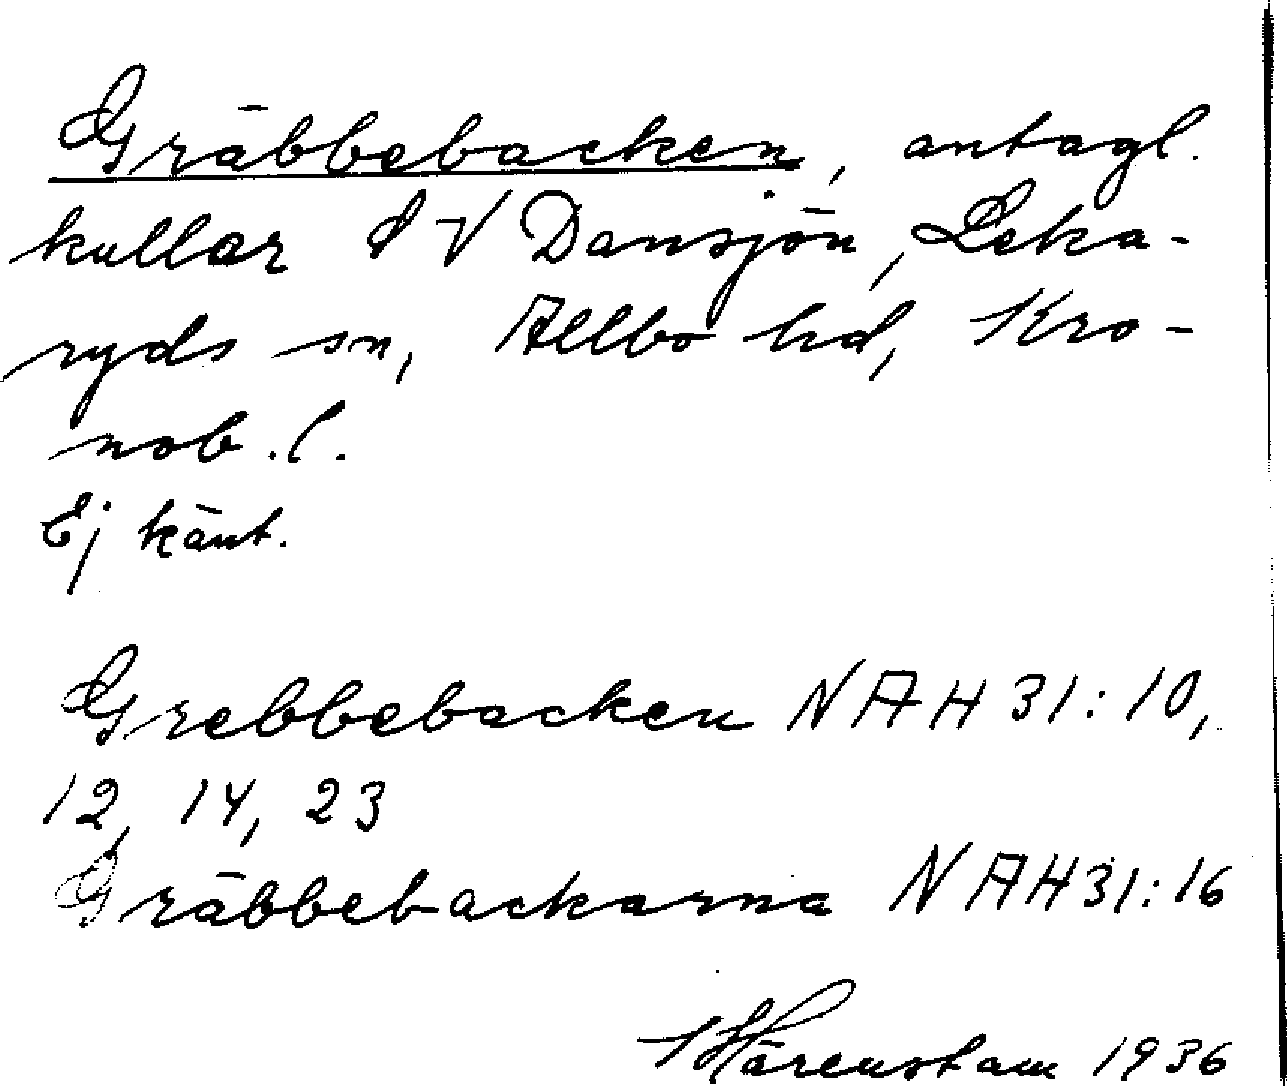 Gräbbebacken, antagl.
kullar SV Dansjön, Leka-
ryds sn, Allbo hd, Kro-
nob. l.
Ej känt.
Grebbebacken NAH 31:10,
12, 14, 23
Gräbbebackarna NAH 31:16
Härenstam 1936